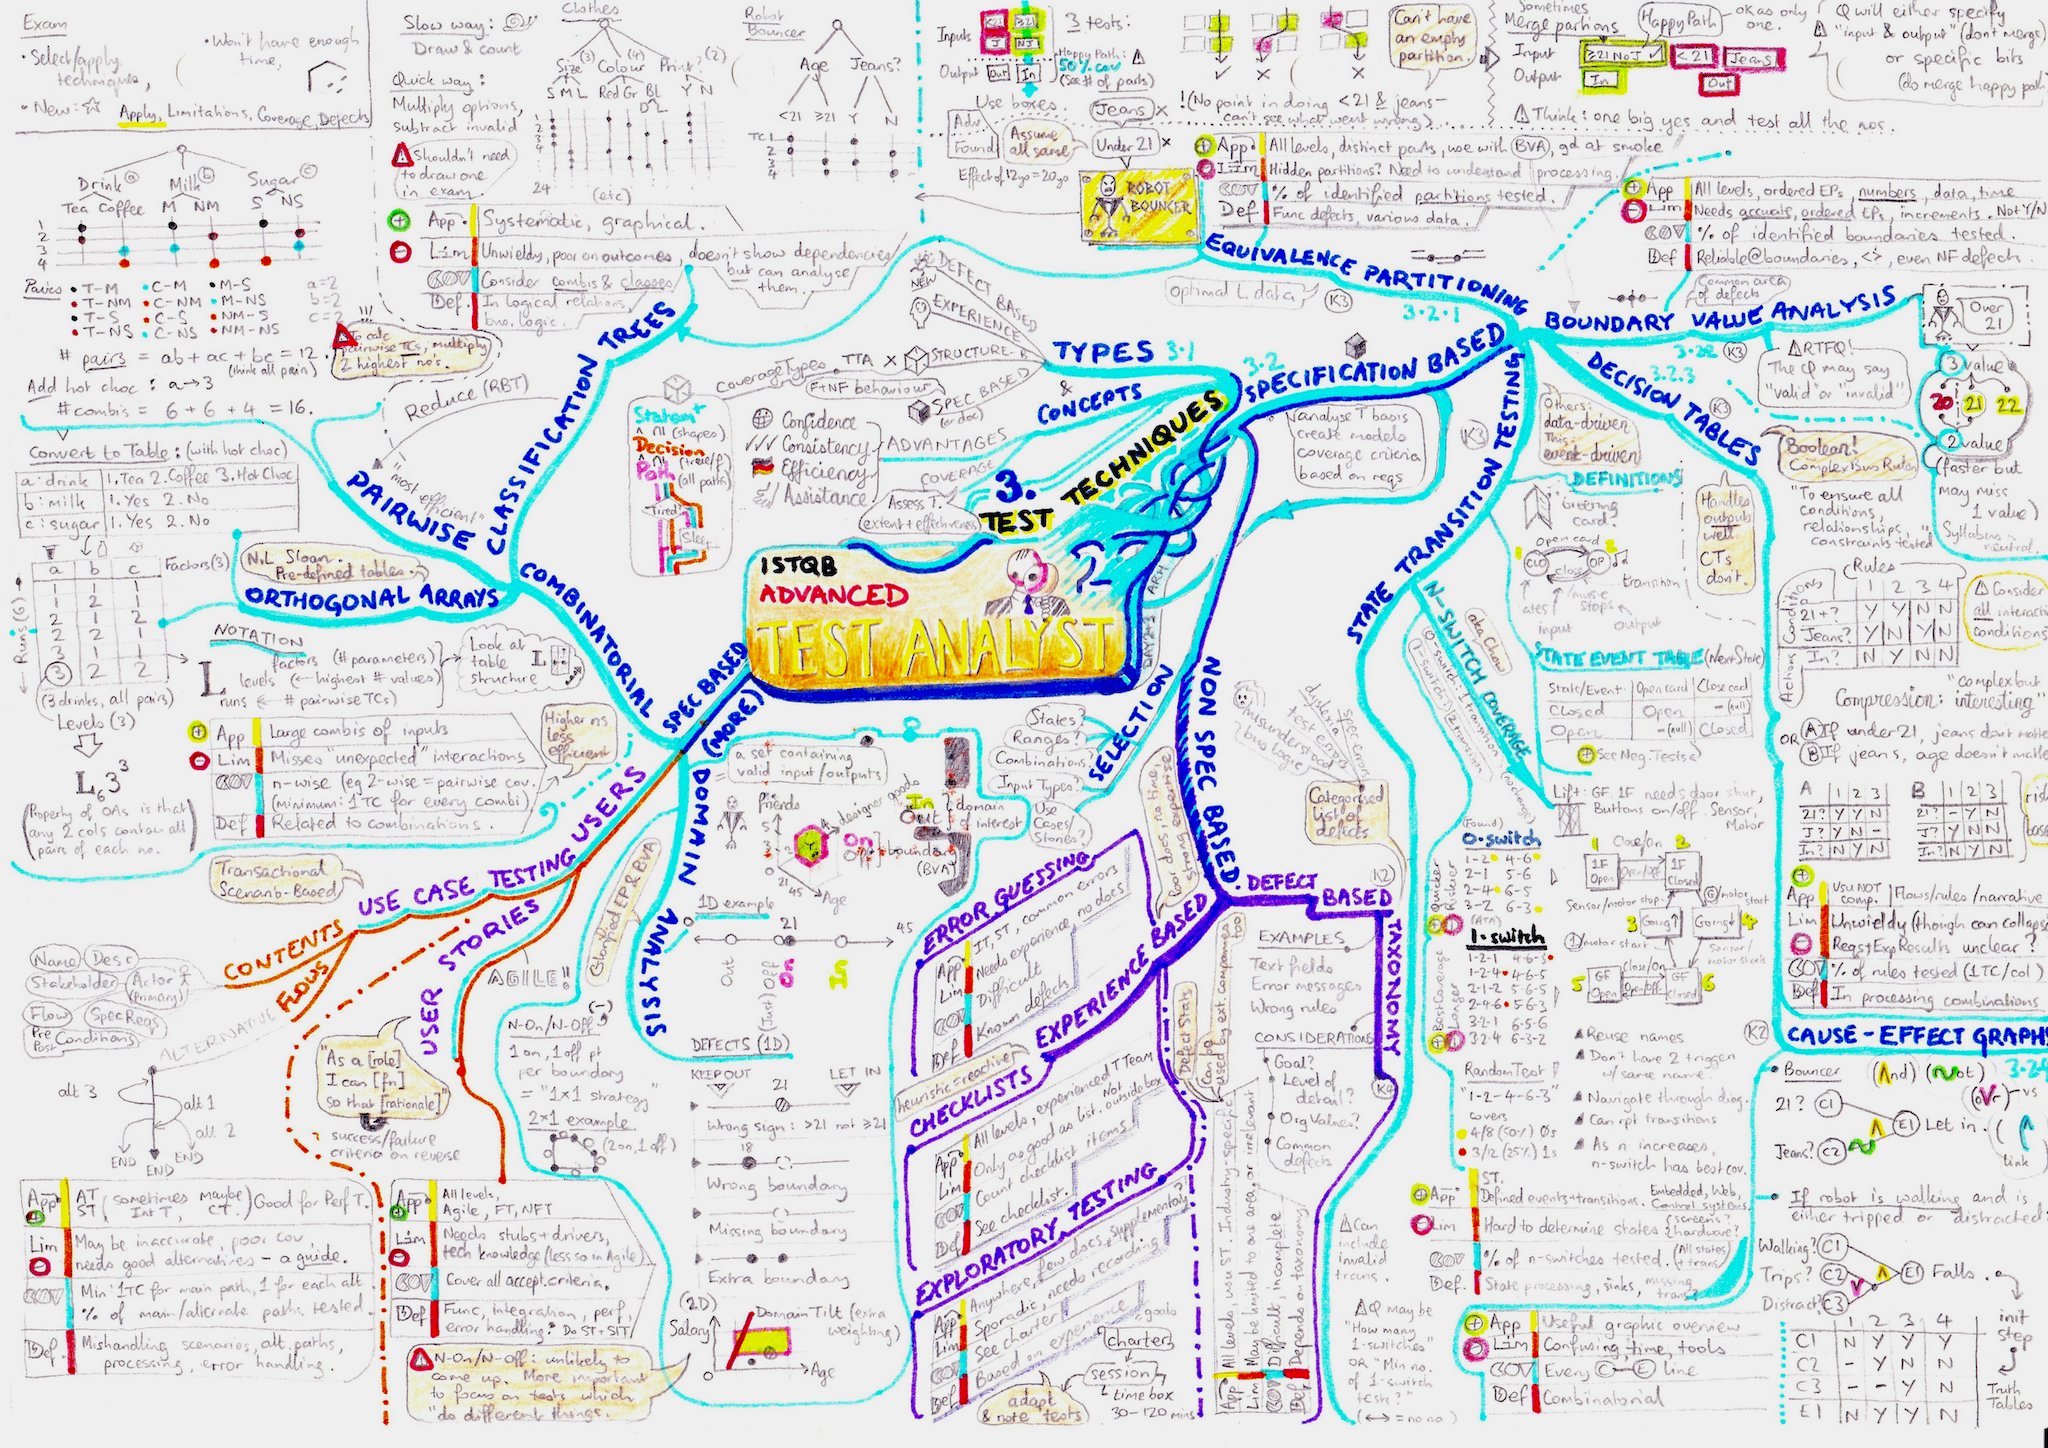 Exam
• Select/apply
techniques,
• Won't have enough
time,
• New:
Apply, Limitations, Coverage, Defects
Slow way:
Draw & count
Quick way:
Multiply options,
subtract invalid
Shouldn't need
to draw one
in exam.
Clothes
(3) (4) (2)
Size Colour Print?
S M L Red Gr BL Y N
24
(etc)
Robot
Bouncer
Age Jeans?
<21 ≥21 Y N
TC 1
2
3
4
App. Systematic, graphical.
Lim Unwieldy, poor on outcomes, doesn't show dependencies
but can analyse
them.
COV Consider combis & classes
Def. In logical relations,
bus. logic.
Inputs
<21 ≥21
J NJ
Output Out In
3 tests:
Happy Path:
50% cov
(see # of parts)
Can't have
an empty
partition.
Use boxes.
Jeans ×
Assume
all same
Under 21 ×
Effect of 12yo = 20yo
!(No point in doing <21 & jeans-
can't see what went wrong)
Sometimes
Merge partions
Happy Path
ok as only
one.
Input ≥21 No J ✓ <21 Jeans
Output In Out
Q will either specify
"input & output" (don't merge)
or specific bits
(do merge happy path)
Think: one big yes and test all the nos.
App All levels, distinct parts, use with BVA, gd at smoke
Lim Hidden partitions? Need to understand processing.
COV % of identified partitions tested.
Def Func defects, various data.
ROBOT
BOUNCER
App All levels, ordered EPs, numbers, data, time
Lim Needs accurate, ordered EPs, increments. Not Y/N
COV % of identified boundaries tested.
Def Reliable@boundaries, <>, even NF defects.
Common area
of defects
Drink (a) Milk (b) Sugar (c)
Tea Coffee M NM S NS
1
2
3
4
Pairs
• T-M • C-M • M-S a=2
• T-NM • C-NM • M-NS b=2
• T-S • C-S • NM-S c=2
• T-NS • C-NS • NM-NS
# pairs = ab + ac + bc = 12.
(think all pairs)
To calc
pairwise TCs, multiply
2 highest no's.
Add hot choc : a→3
#combis = 6 + 6 + 4 = 16.
Reduce (RBT)
"most efficient"
CLASSIFICATION TREES
PAIRWISE
ORTHOGONAL ARRAYS
COMBINATORIAL
Convert to Table: (with hot choc)
a: drink 1. Tea 2. Coffee 3. Hot Choc
b: milk 1. Yes 2. No
c: sugar 1. Yes 2. No
N.L Sloan.
Pre-defined tables.
a b c Factors (3)
1 1 1
1 2 1
2 1 2
2 2 1
3 1 1
3 2 2
Runs (6)
(3 drinks, all pairs)
Levels (3)
L₆3³
(Property of OAs is that
any 2 cols contain all
pairs of each no.
NOTATION
L factors (# parameters)
levels (← highest # values)
runs ← # pairwise TCs)
Look at
table
structure
App Large combis of inputs
Lim Misses "unexpected" interactions
COV n-wise (eg 2-wise = pairwise cov.
(minimum: 1 TC for every combi)
Def Related to combinations.
Higher ns
less
efficient
DEFECT BASED
NEW
EXPERIENCE
STRUCTURE-B
SPEC BASED
(or doc)
TTA ×
Coverage Types
F+NF behaviour
TYPES 3.1
&
CONCEPTS
ADVANTAGES
Confidence
Consistency
Efficiency
Assistance
COVERAGE
Assess T.
extent + effectiveness
Statem+
(shapes)
Decision
(true/f)
Path
(all paths)
Tired?
Sleep
3.
TEST TECHNIQUES
ISTQB
ADVANCED
TEST ANALYST
SPEC BASED
(MORE)
3.2
SPECIFICATION BASED
analyse T basis
create models
coverage criteria
based on reqs
K3
EQUIVALENCE PARTITIONING
Optimal L. data K3
3.2.1
BOUNDARY VALUE ANALYSIS
3.2.2 K3
RTFQ!
The Q may say
"valid" or "invalid"
Over
21
3 value
20 21 22
2 value
(faster but
may miss
1 value)
Syllabus
neutral.
DECISION TABLES
3.2.3 K3
Boolean!
Complex Bus Rules
"To ensure all
conditions,
relationships,
constraints tested"
Handles
outputs
well.
CTs
don't.
Rules
1 2 3 4
Conditions
21+? Y Y N N
Jeans? Y N Y N
Actions
In? N Y N N
Consider
all interact
conditions
Compression: "complex but
interesting"
OR (A) If under 21, jeans don't matter
(B) If jeans, age doesn't matter
A 1 2 3
21? Y Y N
J? Y N -
In? N Y N
B 1 2 3
21? - Y N
J? Y N N
In? N Y N
App Usu NOT comp. Flows/rules/narrative
Lim Unwieldy (though can collapse
Reqs + Exp Results unclear?
COV % of rules tested (1 TC/col)
Def In processing combinations
STATE TRANSITION TESTING
K3
Others:
data-driven
This:
event-driven
DEFINITIONS
Greeting
card.
Open card
CLO OP
close
transition
music
stops
input output
STATE EVENT TABLE (Next State)
State/Event Open card Close card
Closed Open - (null)
Open - (null) Closed
See Neg. Tests
N-SWITCH COVERAGE
aka Chow
0-switch: 1 transition
1-switch: 2 transition
(no change)
Lift: GF, 1F needs door shut,
Buttons on/off. Sensor,
Motor
Close/On
1F Open
Open/off
1F Closed
motor start
Sensor/motor stop
Going ↑
Going ↓
motor start
Close/On
GF Open
Open/off
GF Closed
(Found)
0-switch
1-2 4-6
2-1 5-6
2-4 6-5
3-2 6-3
(ATA)
1-switch
1-2-1 4-6-3
1-2-4 4-6-5
2-1-2 5-6-5
2-4-6 5-6-3
3-2-1 6-5-6
3-2-4 6-3-2
Quicker
Riskier
Best Coverage
Longer
Random Test
"1-2-4-6-3"
covers
4/8 (50%) 0s
3/12 (25%) 1s
Reuse names
Don't have 2 trigger
w/ same name
Navigate through diag.
Can rpt transitions
As n increases,
n-switch has best cov.
App ST.
Defined events+transitions. Embedded, Web,
Control systems.
Lim Hard to determine states (screens? hardware?
COV % of n-switches tested (All states
+ trans)
Def. State processing, sinks, missing
trans?
Can
include
invalid
trans.
Q may be
"How many
1-switches"
OR "Min no.
of 1-switch
tests?"
(↔ = no no)
CAUSE-EFFECT GRAPH
K2
3.2.4
• Bouncer (∧nd) (~ot)
(∨r)
21? C1
E1 Let in.
Jeans? C2
link
• If robot is walking and is
either tripped or distracted:
Walking? C1
Trips? C2 E1 Falls.
Distract? C3
1 2 3 4
C1 N Y Y Y
C2 - Y N N
C3 - - Y N
E1 N Y Y N
init
step
Truth
Tables
App Useful graphic overview
Lim Confusing, time, tools
COV Every C—E line
Def Combinational
ARH
DAY 2+3
SELECTION
States?
Ranges?
Combinations.
Input Types?
Use
Cases/
Stories?
NON SPEC BASED.
Poor docs, no time,
strong expertise
dyslexia spec errors
test errors
misunderstood
bus logic
Categorised
list of defects
K2
DEFECT BASED
TAXONOMY
K4
EXAMPLES
Text fields
Error messages
Wrong rules
CONSIDERATIONS
Goal?
Level of
detail?
Org Values?
Common
defects
Defect Stats
Can be
used by ext. companies
too
App All levels, usu ST. Industry-specific
Lim May be limited to one area, or irrelevant
COV Difficult: incomplete
Def Depends on taxonomy.
EXPERIENCE BASED
ERROR GUESSING
App IT, ST, common errors
Lim Needs experience, no docs
COV Difficult
Def Known defects
heuristic = reactive
CHECKLISTS
App All levels, experienced T Team
Lim Only as good as list. Not
outside box
COV Count checklist items.
Def See checklist.
EXPLORATORY TESTING
App Anywhere, few docs, supplementary?
Lim Sporadic, needs recording
COV See charter
Def Based on experience
goals
charter
session
time box
30-120 mins
adapt
& note tests
DOMAIN ANALYSIS
a set containing
valid input/outputs
Friends
Age
21 45
designer goods
In
Out
domain
of interest
On
Off
boundary
(BVA)
Glorified EP & BVA
1D example
21 45
Out
(Just) Off
On
In
DEFECTS (1D)
KEEP OUT LET IN
21
Wrong sign: >21 not ≥21
18
Wrong boundary
Missing boundary
Extra boundary
(2D)
Salary
Age
Domain Tilt (extra
weighting)
N-On/N-Off
1 on, 1 off pt
per boundary
= "1×1 strategy"
2×1 example
(2 on, 1 off)
N-On/N-Off: unlikely to
come up. More important
to focus on tests which
"do different things.
USE CASE TESTING
Transactional
Scenario-Based
CONTENTS
FLOWS
ALTERNATIVE
Name Desr
Stakeholder Actor
(primary)
Flow Spec Reqs
Pre
Post Conditions
alt 3
alt 1
alt 2
END END END
App AT (sometimes maybe) Good for Perf T.
ST Int T, CT.
Lim May be inaccurate, poor cov,
needs good alternatives - a guide.
COV Min: 1TC for main path, 1 for each alt
% of main/alternate paths tested.
Def. Mishandling scenarios, alt. paths,
processing, error handling.
USERS
USER STORIES
AGILE!!
"As a [role]
I can [fn]
so that [rationale]"
success/failure
criteria on reverse
App All levels,
Agile, FT, NFT
Lim Needs stubs + drivers,
tech knowledge (less so in Agile)
COV Cover all accept. criteria.
Def Func, integration, perf,
error handling. Do ST + SIT